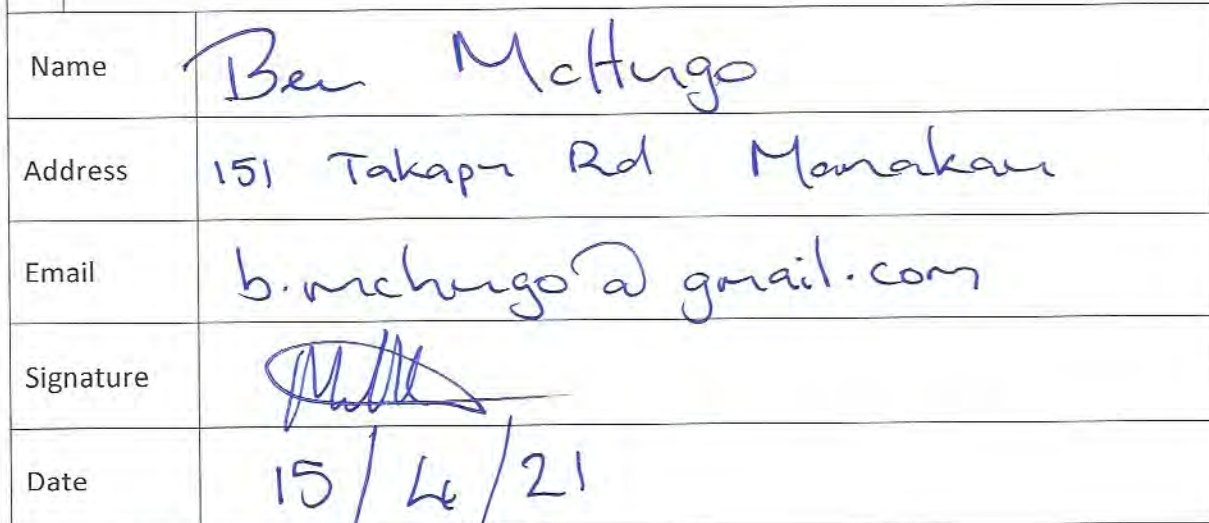 Name Ben McHugo
Address 151 Takapu Rd Manakau
Email b.mchugo@gmail.com
Signature
Date 15/4/21